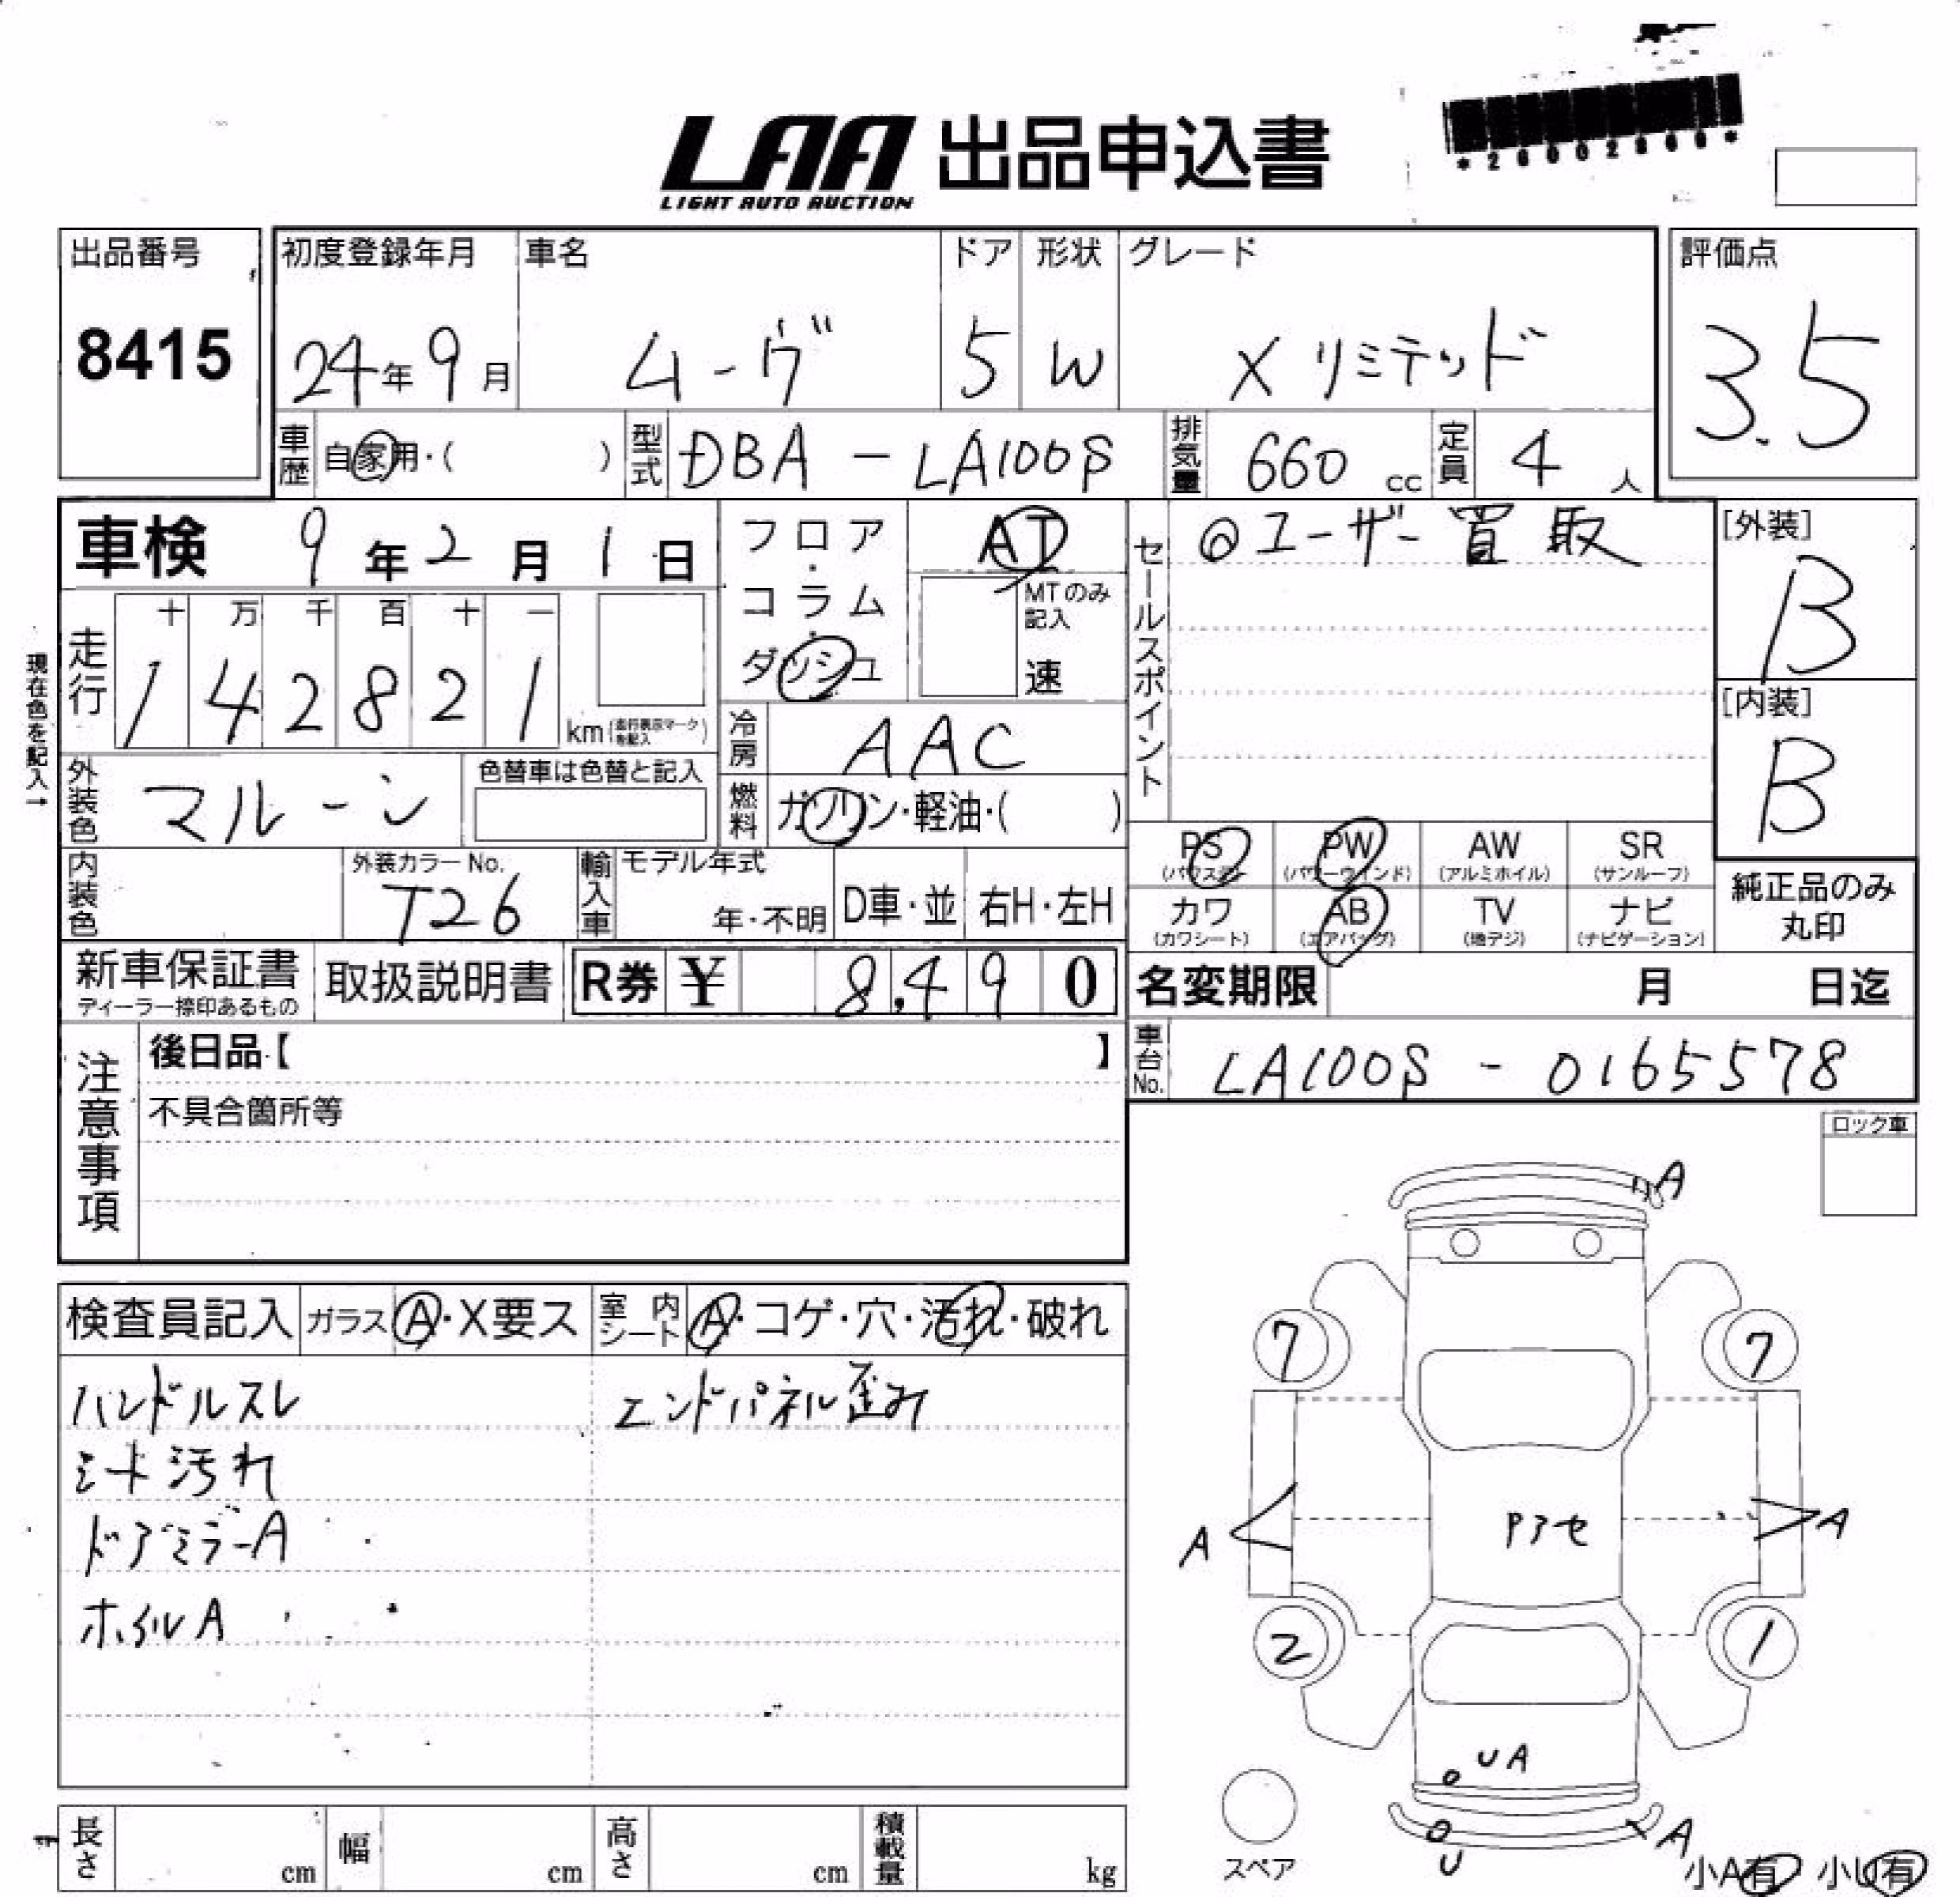 LAA 出品申込書
LIGHT AUTO AUCTION
出品番号
8415
初度登録年月
24年9月
車名
ムーヴ
ドア
5
形状
W
グレード
X リミテッド
評価点
3.5
車歴 自家用・( )
型式 DBA - LA100S
排気量 660 cc
定員 4 人
車検 9年2月1日
フロア・コラム・ダッシュ
AT
MTのみ記入
速
セールスポイント
◎ユーザー買取
[外装]
B
[内装]
B
現在色を記入→
走行
十 万 千 百 十 一
1 4 2 8 2 1 km
冷房 AAC
外装色 マルーン
色替車は色替と記入
燃料 ガソリン・軽油・( )
内装色
外装カラーNo.
T26
輸入車
モデル年式
年・不明
D車・並
右H・左H
PS (パワステ)
PW (パワーウインド)
AW (アルミホイル)
SR (サンルーフ)
カワ (カワシート)
AB (エアバッグ)
TV (地デジ)
ナビ (ナビゲーション)
純正品のみ
丸印
新車保証書
ディーラー捺印あるもの
取扱説明書
R券 ¥ 8,490
名変期限 月 日迄
車台No. LA100S - 0165578
注意事項
後日品【 】
不具合箇所等
ロック車
検査員記入
ガラス A・X要ス
室内シート A・コゲ・穴・汚れ・破れ
ハンドルスレ
エンドパネル歪み
シート汚れ
ドアミラーA
ホイルA
A
7
7
A
Pアセ
A
2
1
UA
A
U
スペア
小A有 小U有
長さ cm
幅 cm
高さ cm
積載量 kg